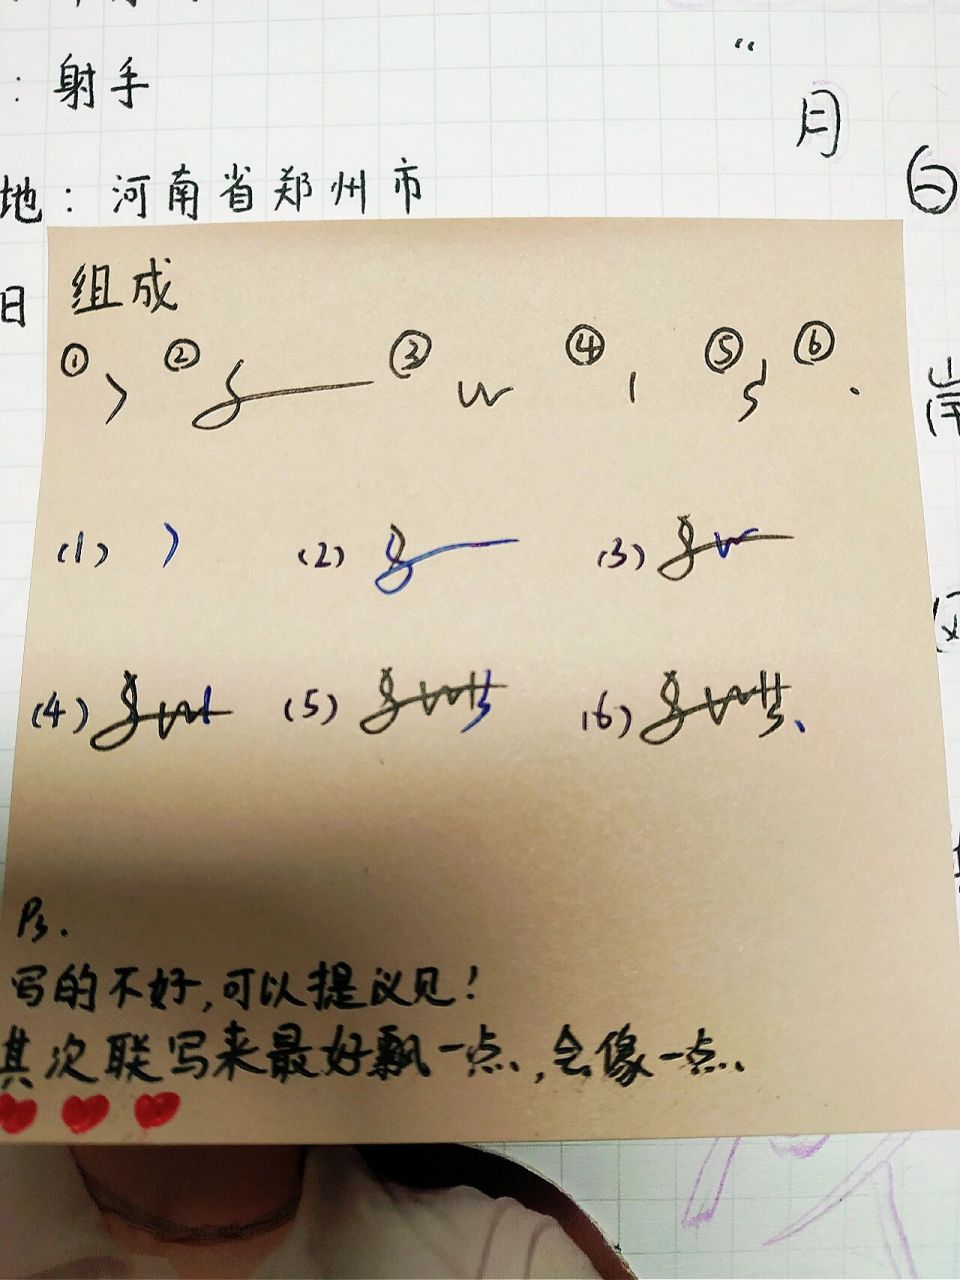 : 射手
月
白
地: 河南省郑州市
日
组成
① ② ③ ④ ⑤ ⑥
岸
(1) (2) (3)
(4) (5) (6)
Ps.
写的不好,可以提议见!
其次联写来最好飘一点、,会像一点、